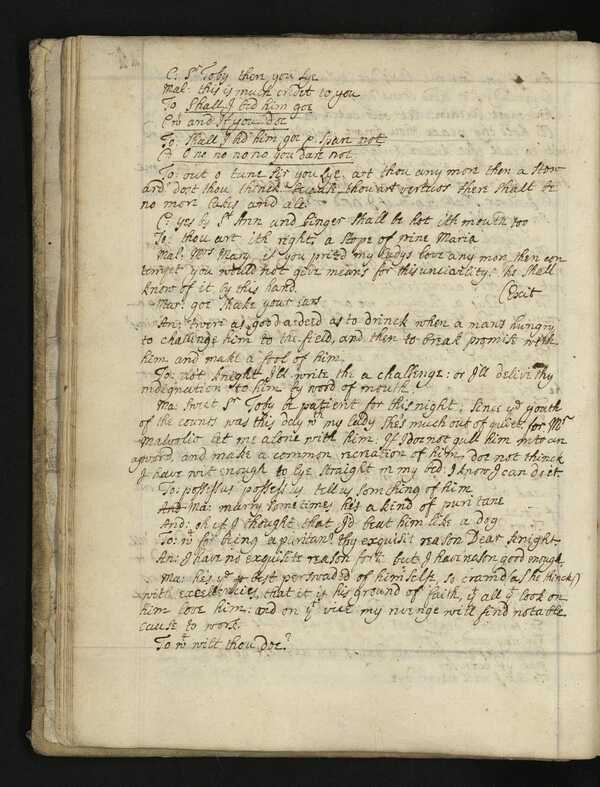 C: Sr Toby there you Lye
Mal: this is much credit to you
To Shall I bid him goe
Cn and If you doe
To: Shall I bid him goe & Spare not
Cl O no no no no you dare not
To: out o tune Sir you Lye. art thou any more then a Stew
ard dost thou thinck because thou art vertuos there Shall be
no more Cakes and ale
C: yes by St Ann and Ginger Shall be hot ith mouth too
To: thou art ith right, a Stope of wine Maria
Mal: Mrs Mary if you prized my Ladys Love any more then con
tempt you would not give means for this uncivility: he Shall
know of it by this hand. (Exit
Mar: goe Shake your ears
An: twere as good a deed as to drinck when a mans hungry
to challenge him to the field, and then to break promise with
him and make a fool of him.
To: do't knight I'll write the a challenge: or I'll deliver thy
indegnation to him by word of mouth
Ma: Sweet Sr Toby be patient for this night, Since ye youth
of the counts was this day wt my lady She's much out of quiet: for Mr
Malvolio let me alone with him: If I doe not gull him into an
ayword and make a common recreation of him, doe not thinck
I have wit enough to Lye Straight in my bed: I know I can do it.
To: possess us possess us tell us something of him
And Ma: marry Sometimes he's a kind of puritane
And: oh if I thought that I'd beat him like a dog
To: wt for being a puritan? thy exquisit reason Dear knight
An: I have no exquisite reason for't: but I have reason good enough
Ma: he's ye best perswaded of himself, so cramd (as he thincks)
with excellencies, that it is his ground of faith, if all yt look on
him love him: and on yt vice my revenge will find notable
cause to work.
To wt wilt thou doe?